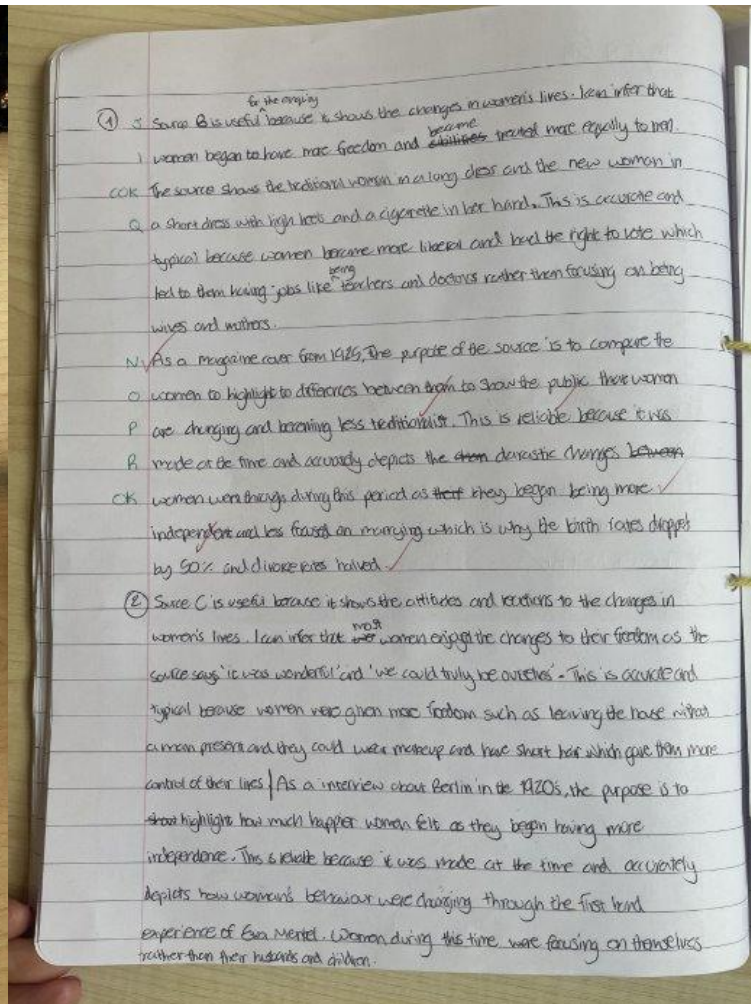 for the enquiry
① J Source B is useful because it shows the changes in women's lives. I can infer that
became
I women began to have more freedom and abilities treated more equally to men.
COK The source shows the traditional woman in a long dress and the new woman in
Q a short dress with high heels and a cigarette in her hand. This is accurate and
typical because women became more liberal and had the right to vote which
being
led to them having jobs like teachers and doctors rather than focusing on being
wives and mothers.
N As a magazine cover from 1925, the purpose of the source is to compare the
O women to highlight to differences between them to show the public that women
P are changing and becoming less traditionalist. This is reliable because it was
R made at the time and accurately depicts the them darastic changes between
OK women went through during this period as their they began being more
independent and less focused on marrying which is why the birth rates dropped
by 50% and divorce rates halved.
② Source C is useful because it shows the attitudes and reactions to the changes in
most
women's lives. I can infer that women enjoyed the changes to their freedom as the
source says 'it was wonderful' and 'we could truly be ourselves'. This is accurate and
typical because women were given more freedom such as leaving the house without
a man present and they could wear makeup and have short hair which gave them more
control of their lives | As a interview about Berlin in the 1920s, the purpose is to
show highlight how much happier women felt as they began having more
independence. This is reliable because it was made at the time and accurately
depicts how woman's behaviour were changing through the first hand
experience of Eva Mertel. Women during this time were focusing on themselves
rather than their husbands and children.